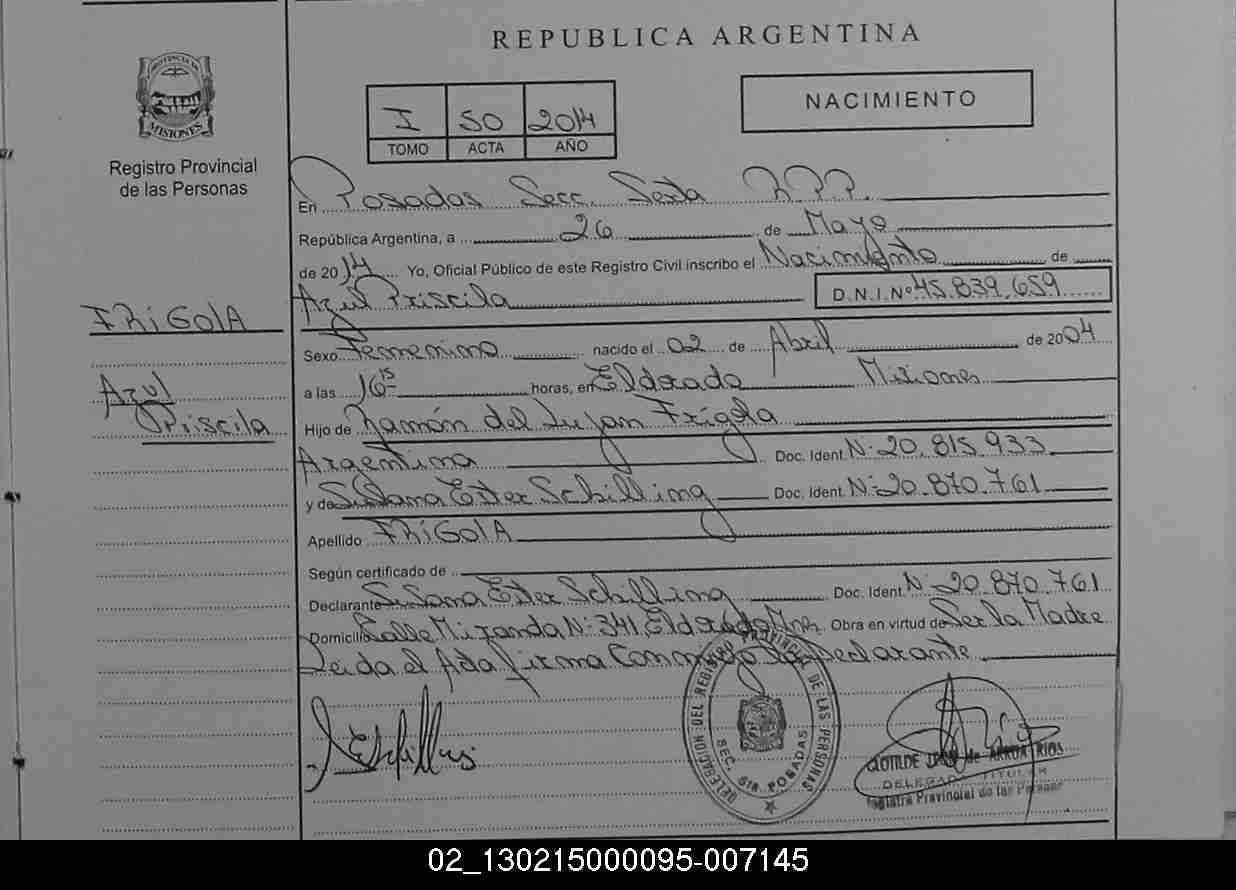 REPUBLICA ARGENTINA
PROVINCIA DE
MISIONES
Registro Provincial
de las Personas
I 50 2014
TOMO ACTA AÑO
NACIMIENTO
En Posadas Secc. Sexta R.P.P.
República Argentina, a 26 de Mayo
de 2014 Yo, Oficial Público de este Registro Civil inscribo el Nacimiento de
Azul Priscila D.N.I.Nº 45.839.659
FRiGOlA
Azul
Priscila
Sexo Femenino nacido el 02 de Abril de 2004
a las 16 15 horas, en Eldorado Misiones
Hijo de Ramón del Lujan Frigola
Argentina Doc. Ident. N: 20.815.933
y de Susana Ester Schilling Doc. Ident. N: 20.870.761
Apellido FRiGOlA
Según certificado de
Declarante Susana Ester Schilling Doc. Ident. N: 20.870.761
Domicilio Calle Miranda N: 341 Eldorado Mnes Obra en virtud de Ser la Madre
Leida el Acta firma Conmigo la Declarante
DELEGACION DEL REGISTRO PROVINCIAL DE LAS PERSONAS
SEC. 6ta. POSADAS
CLOTILDE de ARRUA RIOS
DELEGADA TITULAR
Registro Provincial de las Personas
02_130215000095-007145